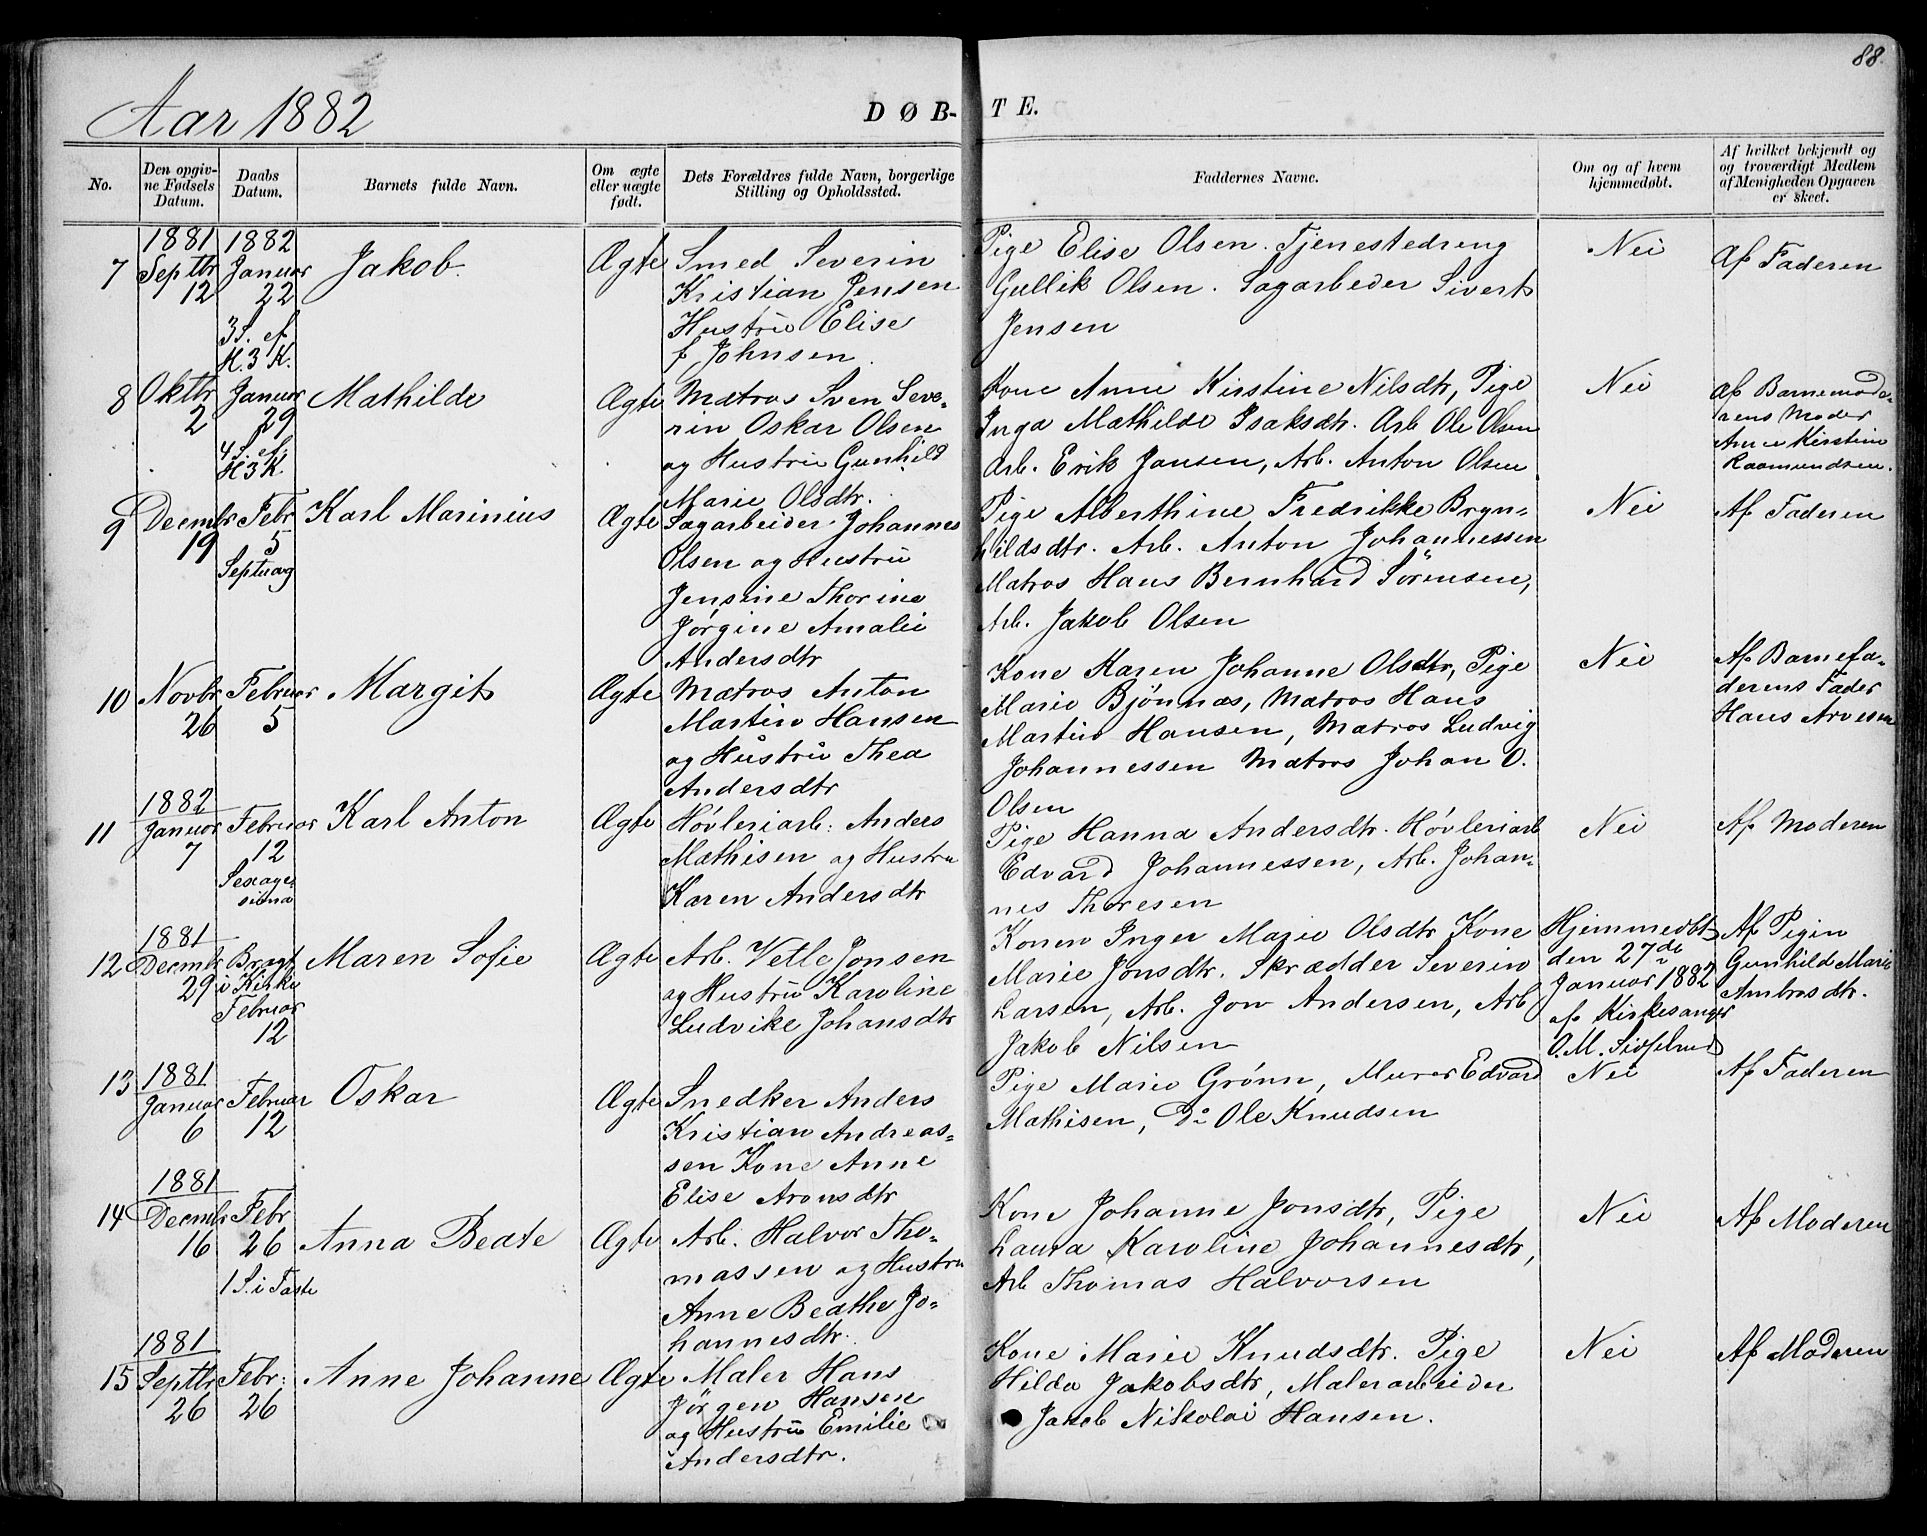 88.
Aar 1882
DØB-
TE.
No.
Den opgiv-
ne Fødsels
Datum.
Daabs
Datum.
Barnets fulde Navn.
Om ægte
eller uægte
født.
Dets Forældres fulde Navn, borgerlige
Stilling og Opholdssted.
Faddernes Navne.
Om og af hvem
hjemmedøbt.
Af hvilket bekjendt og
og troværdigt Medlem
af Menigheden Opgaven
er skeet.
7
1881
Septbr
12
1882
Januar
22
3 S. ef.
H. 3 K.
Jakob.
Ægte
Smed Severin
Kristian Jensen
Hustru Elise
f Johnsen.
Pige Elise Olsen. Tjenestedreng
Gullik Olsen. Sagarbeder Sivert
Jensen
Nei
Af Faderen
8
Oktbr
2
Januar
29
4 S. ef.
H 3 K.
Mathilde
Ægte
Matros Sven Seve-
rin Oskar Olsen
og Hustru Gunhild
Marie Olsdtr.
Kone Anne Kirstine Nilsdtr, Pige
Inga Mathilde Isaksdtr. Arb Ole Olsen
Arb. Erik Jansen, Arb. Anton Olsen
Nei
af Barnemode-
rens Moder
Anne Kirstine
Rasmundsen.
9
Decmbr
19
Febr
5
Septuag
Karl Marinius
Ægte
Sagarbeider Johannes
Olsen og Hustru
Jensine Thorine
Jörgine Amalie
Andersdtr
Pige Alberthine Fredrikke Bryn-
hildsdtr. Arb. Anton Johannessen
Matros Hans Bernhard Sörensen,
Arb. Jakob Olsen
Nei
Af Faderen
10
Novbr
26
Februar
5
Margit
Ægte
Matros Anton
Martin Hansen
og Hustru Thea
Andersdtr
Kone Karen Johanne Olsdtr, Pige
Marie Bjönnæs, Matros Hans
Martin Hansen, Matros Ludvig
Johannessen Matros Johan O.
Olsen
Nei
Af Barnefa-
derens Fader
Hans Arvesen
11
1882
Januar
7
Februar
12
Sexage-
sima
Karl Anton
Ægte
Hövleriarb: Anders
Mathisen og Hustru
Karen Andersdtr
Pige Hanna Andersdtr. Hövleriarb
Edvard Johannessen, Arb. Johan-
nes Thoresen
Nei
Af Moderen
12
1881
Decmbr
29
Bragt
i Kirke
Februar
12
Maren Sofie
Ægte
Arb. Vetle Jonsen
og Hustru Karoline
Ludvike Johansdtr
Konen Inger Marie Olsdtr Kone
Marie Jonsdtr. Skrædder Severin
Larsen, Arb. Jon Andersen, Arb
Jakob Nilsen
Hjemmedöbt
den 27de
Januar 1882
af Kirkesanger
O. M.
Af Pigen
Gunhild Marie
Ambrosdtr.
13
1881
Januar
6
Februar
12
Oskar
Ægte
Snedker Anders
Kristian Andreas-
sen Kone Anne
Elise Aronsdtr
Pige Marie Grönn, Murer Edvard
Mathisen, Do Ole Knudsen
Nei
Af Faderen
14
1881
Decmbr
16
Febr
26
1 S. i Faste
Anna Beate
Ægte
Arb. Halvor Tho-
massen og Hustru
Anne Beathe Jo-
hannesdtr.
Kone Johanne Jonsdtr, Pige
Laura Karoline Johannesdtr,
Arb Thomas Halvorsen
Nei
Af Moderen
15
1881
Septbr
26
Febr:
26
Anne Johanne
Ægte
Maler Hans
Jörgen Hansen
og Hustru Emilie
Andersdtr.
Kone Marie Knudsdtr. Pige
Hilda Jakobsdtr, Malerarbeider
Jakob Nikolai Hansen.
Nei
Af Moderen